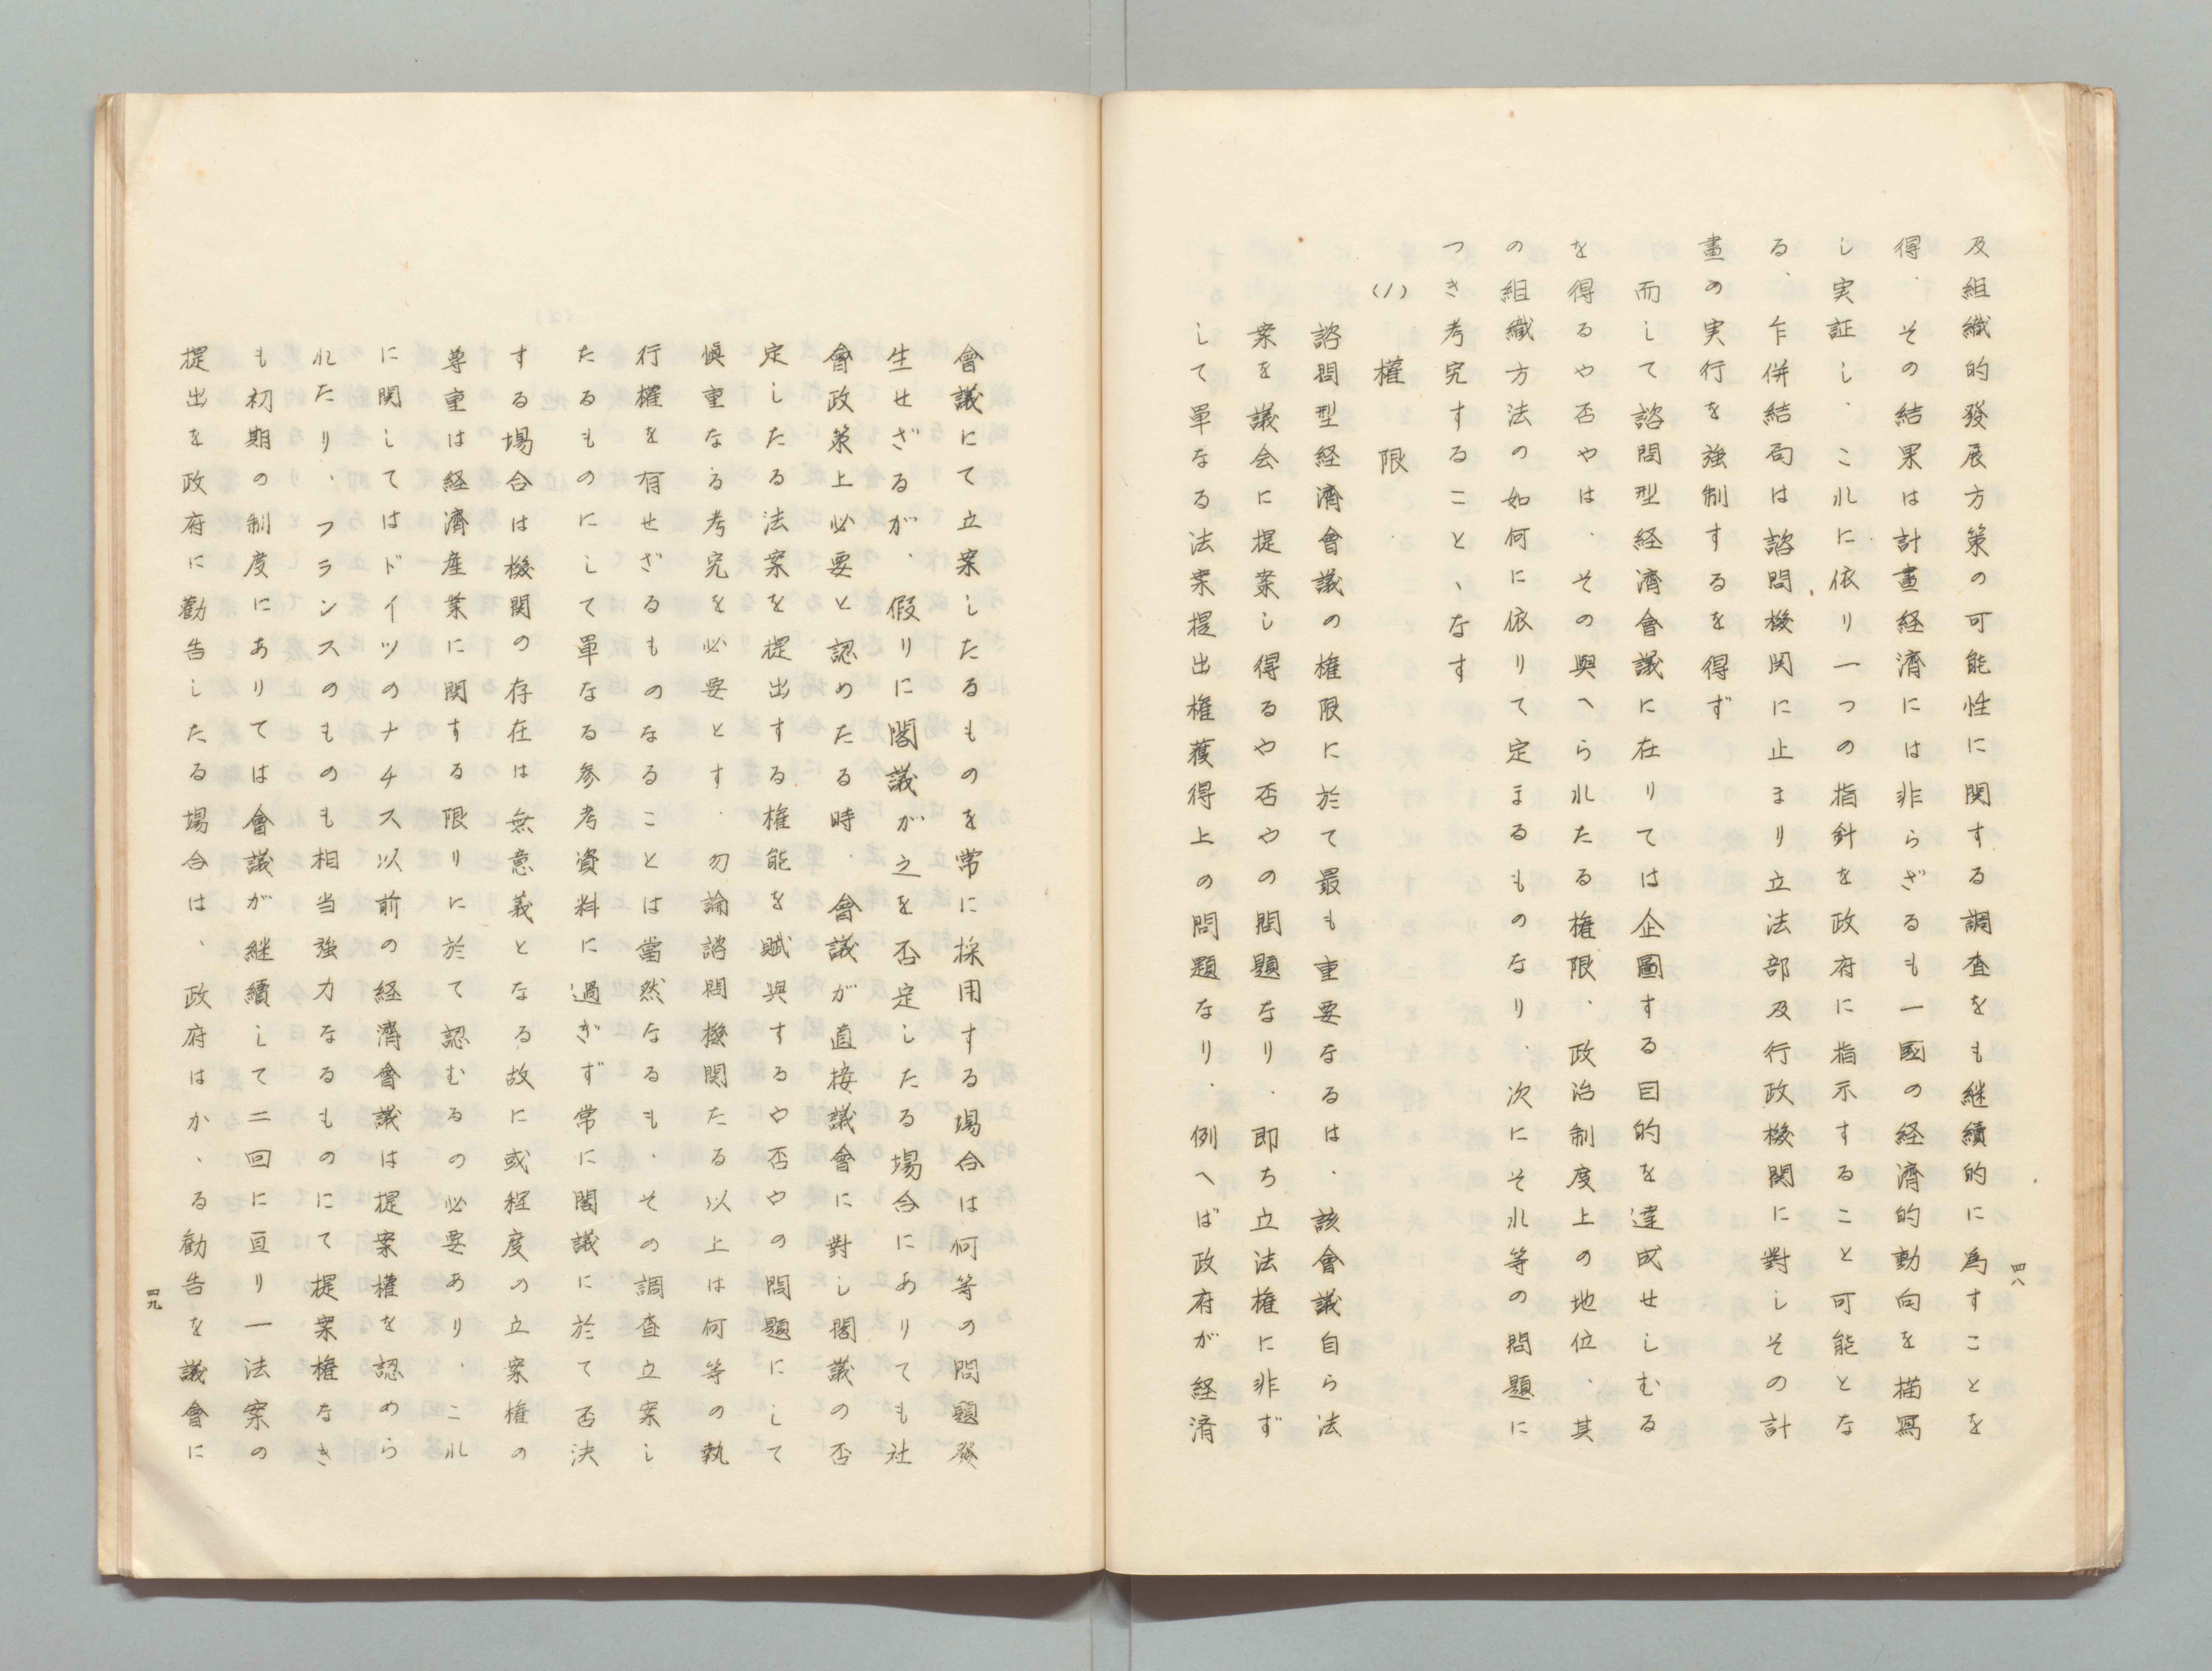 及組織的發展方策の可能性に関する調査をも継續的に爲すことを
得、その結果は計畫経濟には非らざるも一國の経濟的動向を描寫
し実証し、これに依り一つの指針を政府に指示すること可能とな
る、乍併結局は諮問機関に止まり立法部及行政機関に對しその計
畫の実行を強制するを得ず
而して諮問型経濟會議に在りては企圖する目的を達成せしむる
を得るや否やは、その與へられたる権限、政治制度上の地位、其
の組織方法の如何に依りて定まるものなり、次にそれ等の問題に
つき考究することゝなす
(1) 權限
諮問型経濟會議の権限に於て最も重要なるは、該會議自ら法
案を議会に提案し得るや否やの問題なり、即ち立法権に非ず
して単なる法案提出権獲得上の問題なり、例へば政府が経済
四八
會議にて立案したるものを常に採用する場合は何等の問題發
生せざるが、假りに閣議が之を否定したる場合にありても社
會政策上必要と認めたる時、會議が直接議會に對し閣議の否
定したる法案を提出する権能を賦與するや否やの問題にして
愼重なる考究を必要とす、勿論諮問機関たる以上は何等の執
行權を有せざるものなることは當然なるも、その調査立案し
たるものにして単なる参考資料に過ぎず常に閣議に於て否決
する場合は機関の存在は無意義となる故に或程度の立案権の
尊重は経濟産業に関する限りに於て認むるの必要あり、これ
に関してはドイツのナチス以前の経濟會議は提案權を認めら
れたり、フランスのものも相当強力なるものにて提案権なき
も初期の制度にありては會議が継續して二回に亘り一法案の
提出を政府に勸告したる場合は、政府はかゝる勸告を議會に
四九